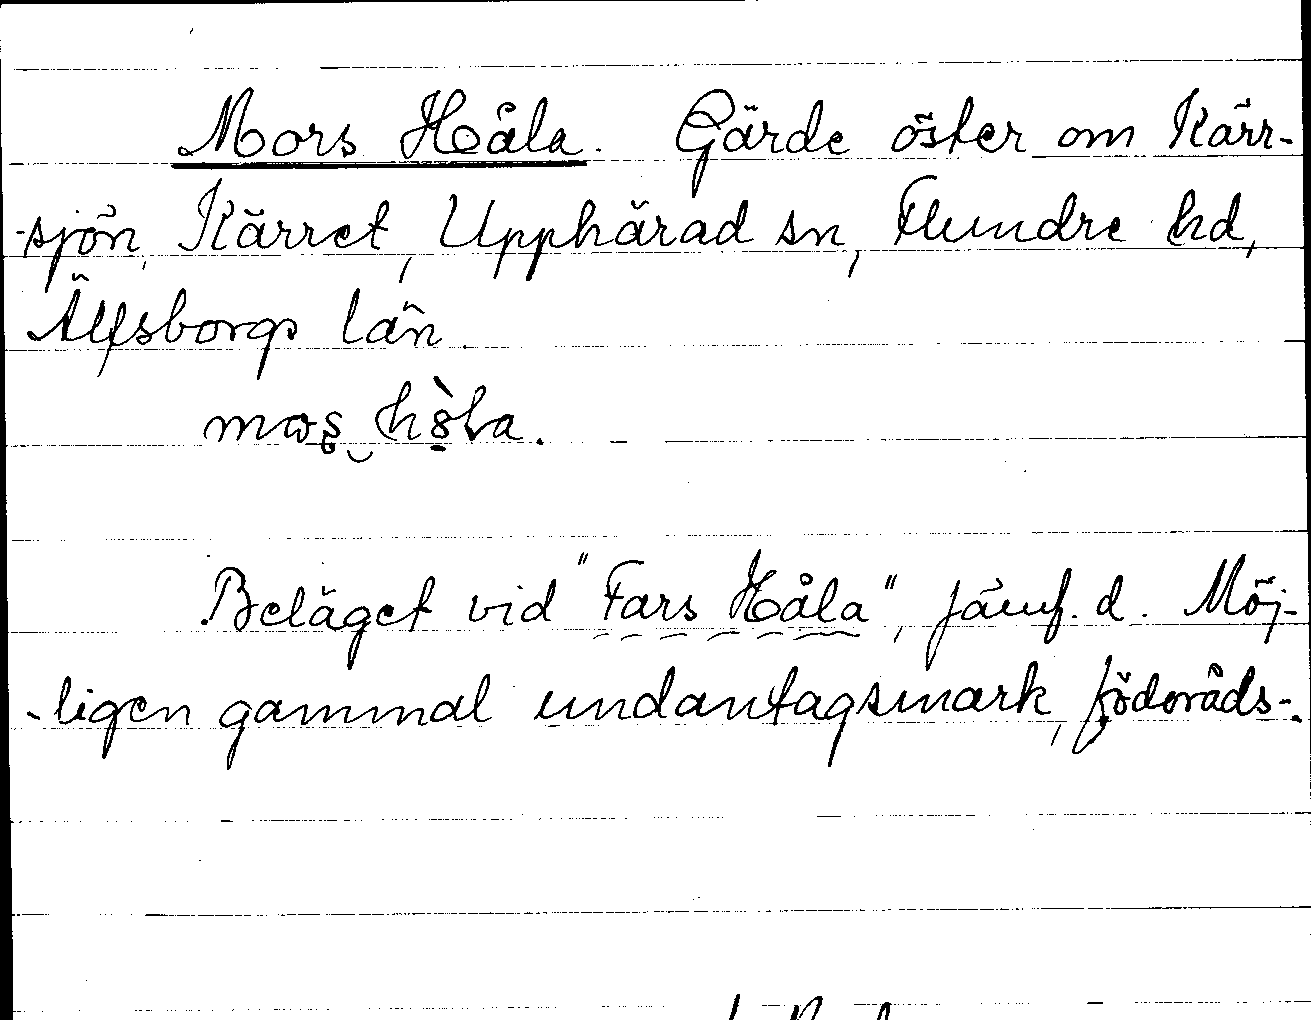 Mors Håla. Gärde öster om Kärr-
-sjön, Kärret, Upphärad sn, Flundre hd,
Älfsborgs län.
Beläget vid "Fars Håla", jämf. d. Möj-
-ligen gammal undantagsmark, födoråds-.